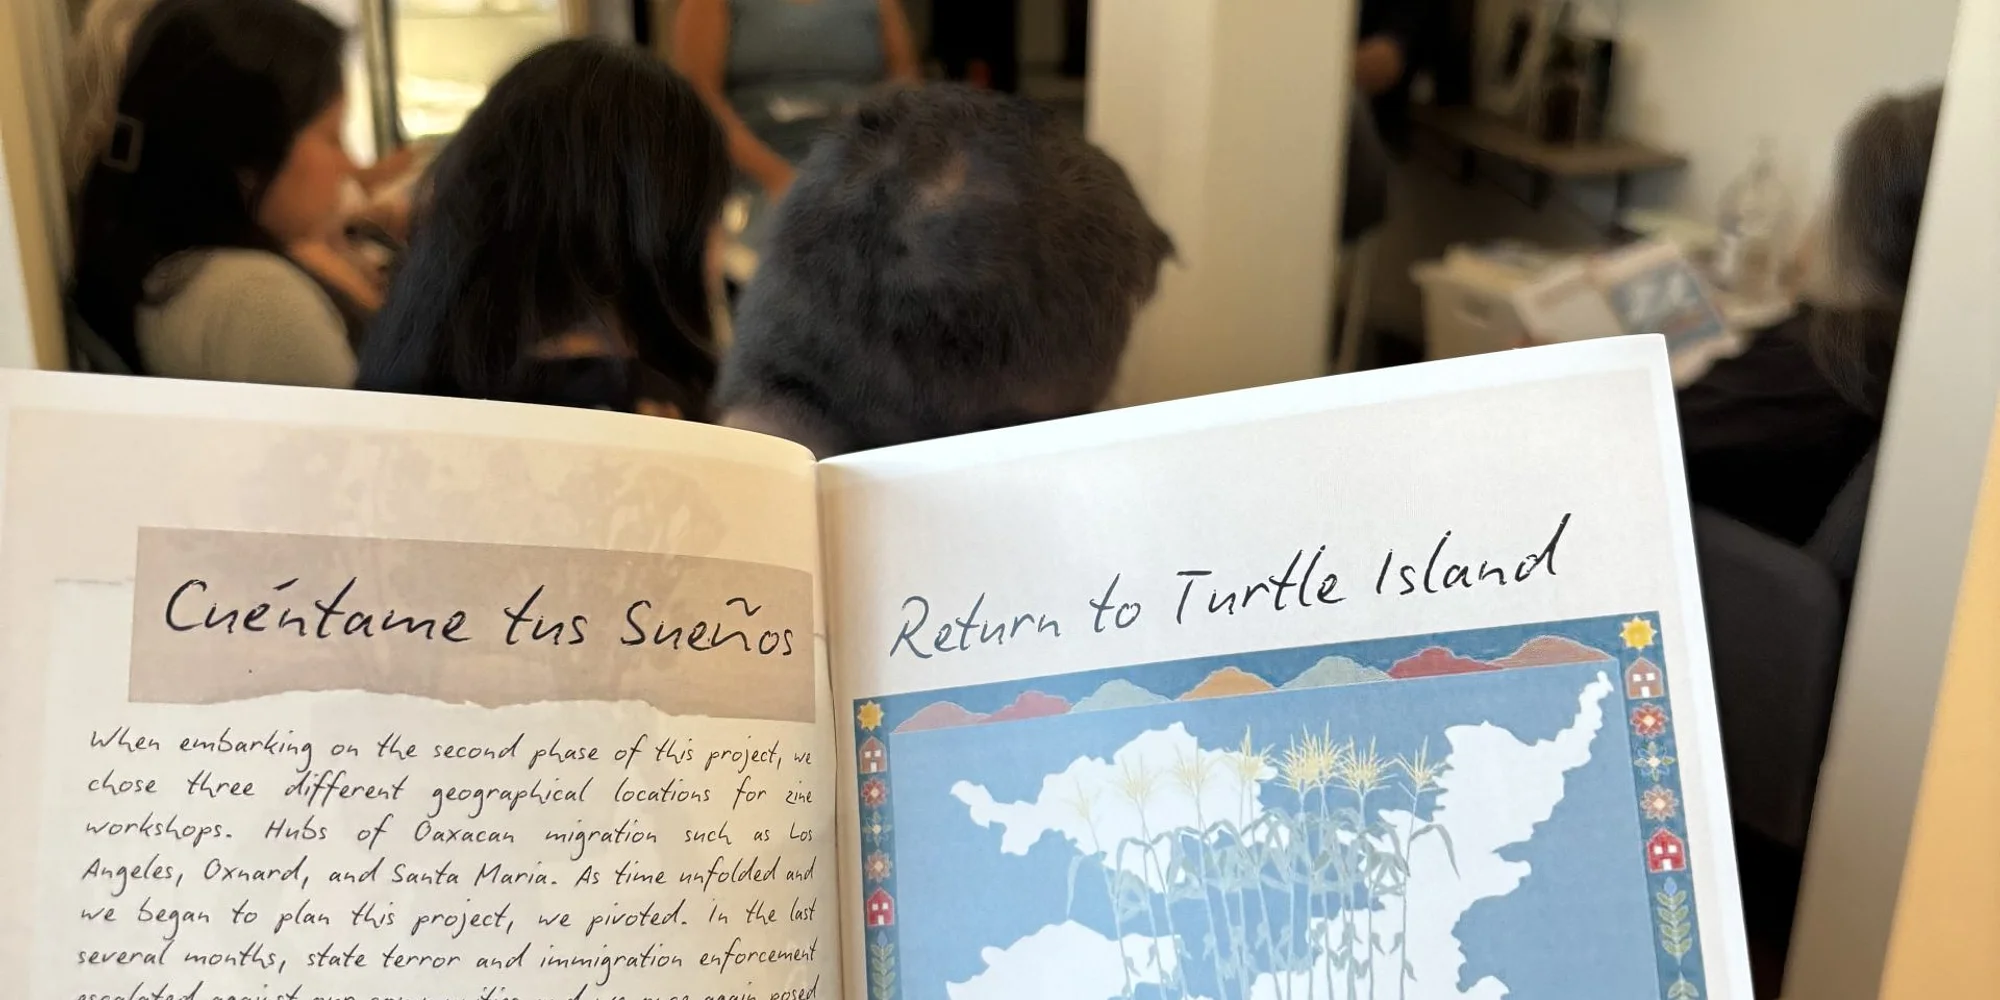 Cuéntame tus Sueños
When embarking on the second phase of this project, we
chose three different geographical locations for zine
workshops. Hubs of Oaxacan migration such as Los
Angeles, Oxnard, and Santa Maria. As time unfolded and
we began to plan this project, we pivoted. In the last
several months, state terror and immigration enforcement
escalated against our communities and we once again posed
Return to Turtle Island